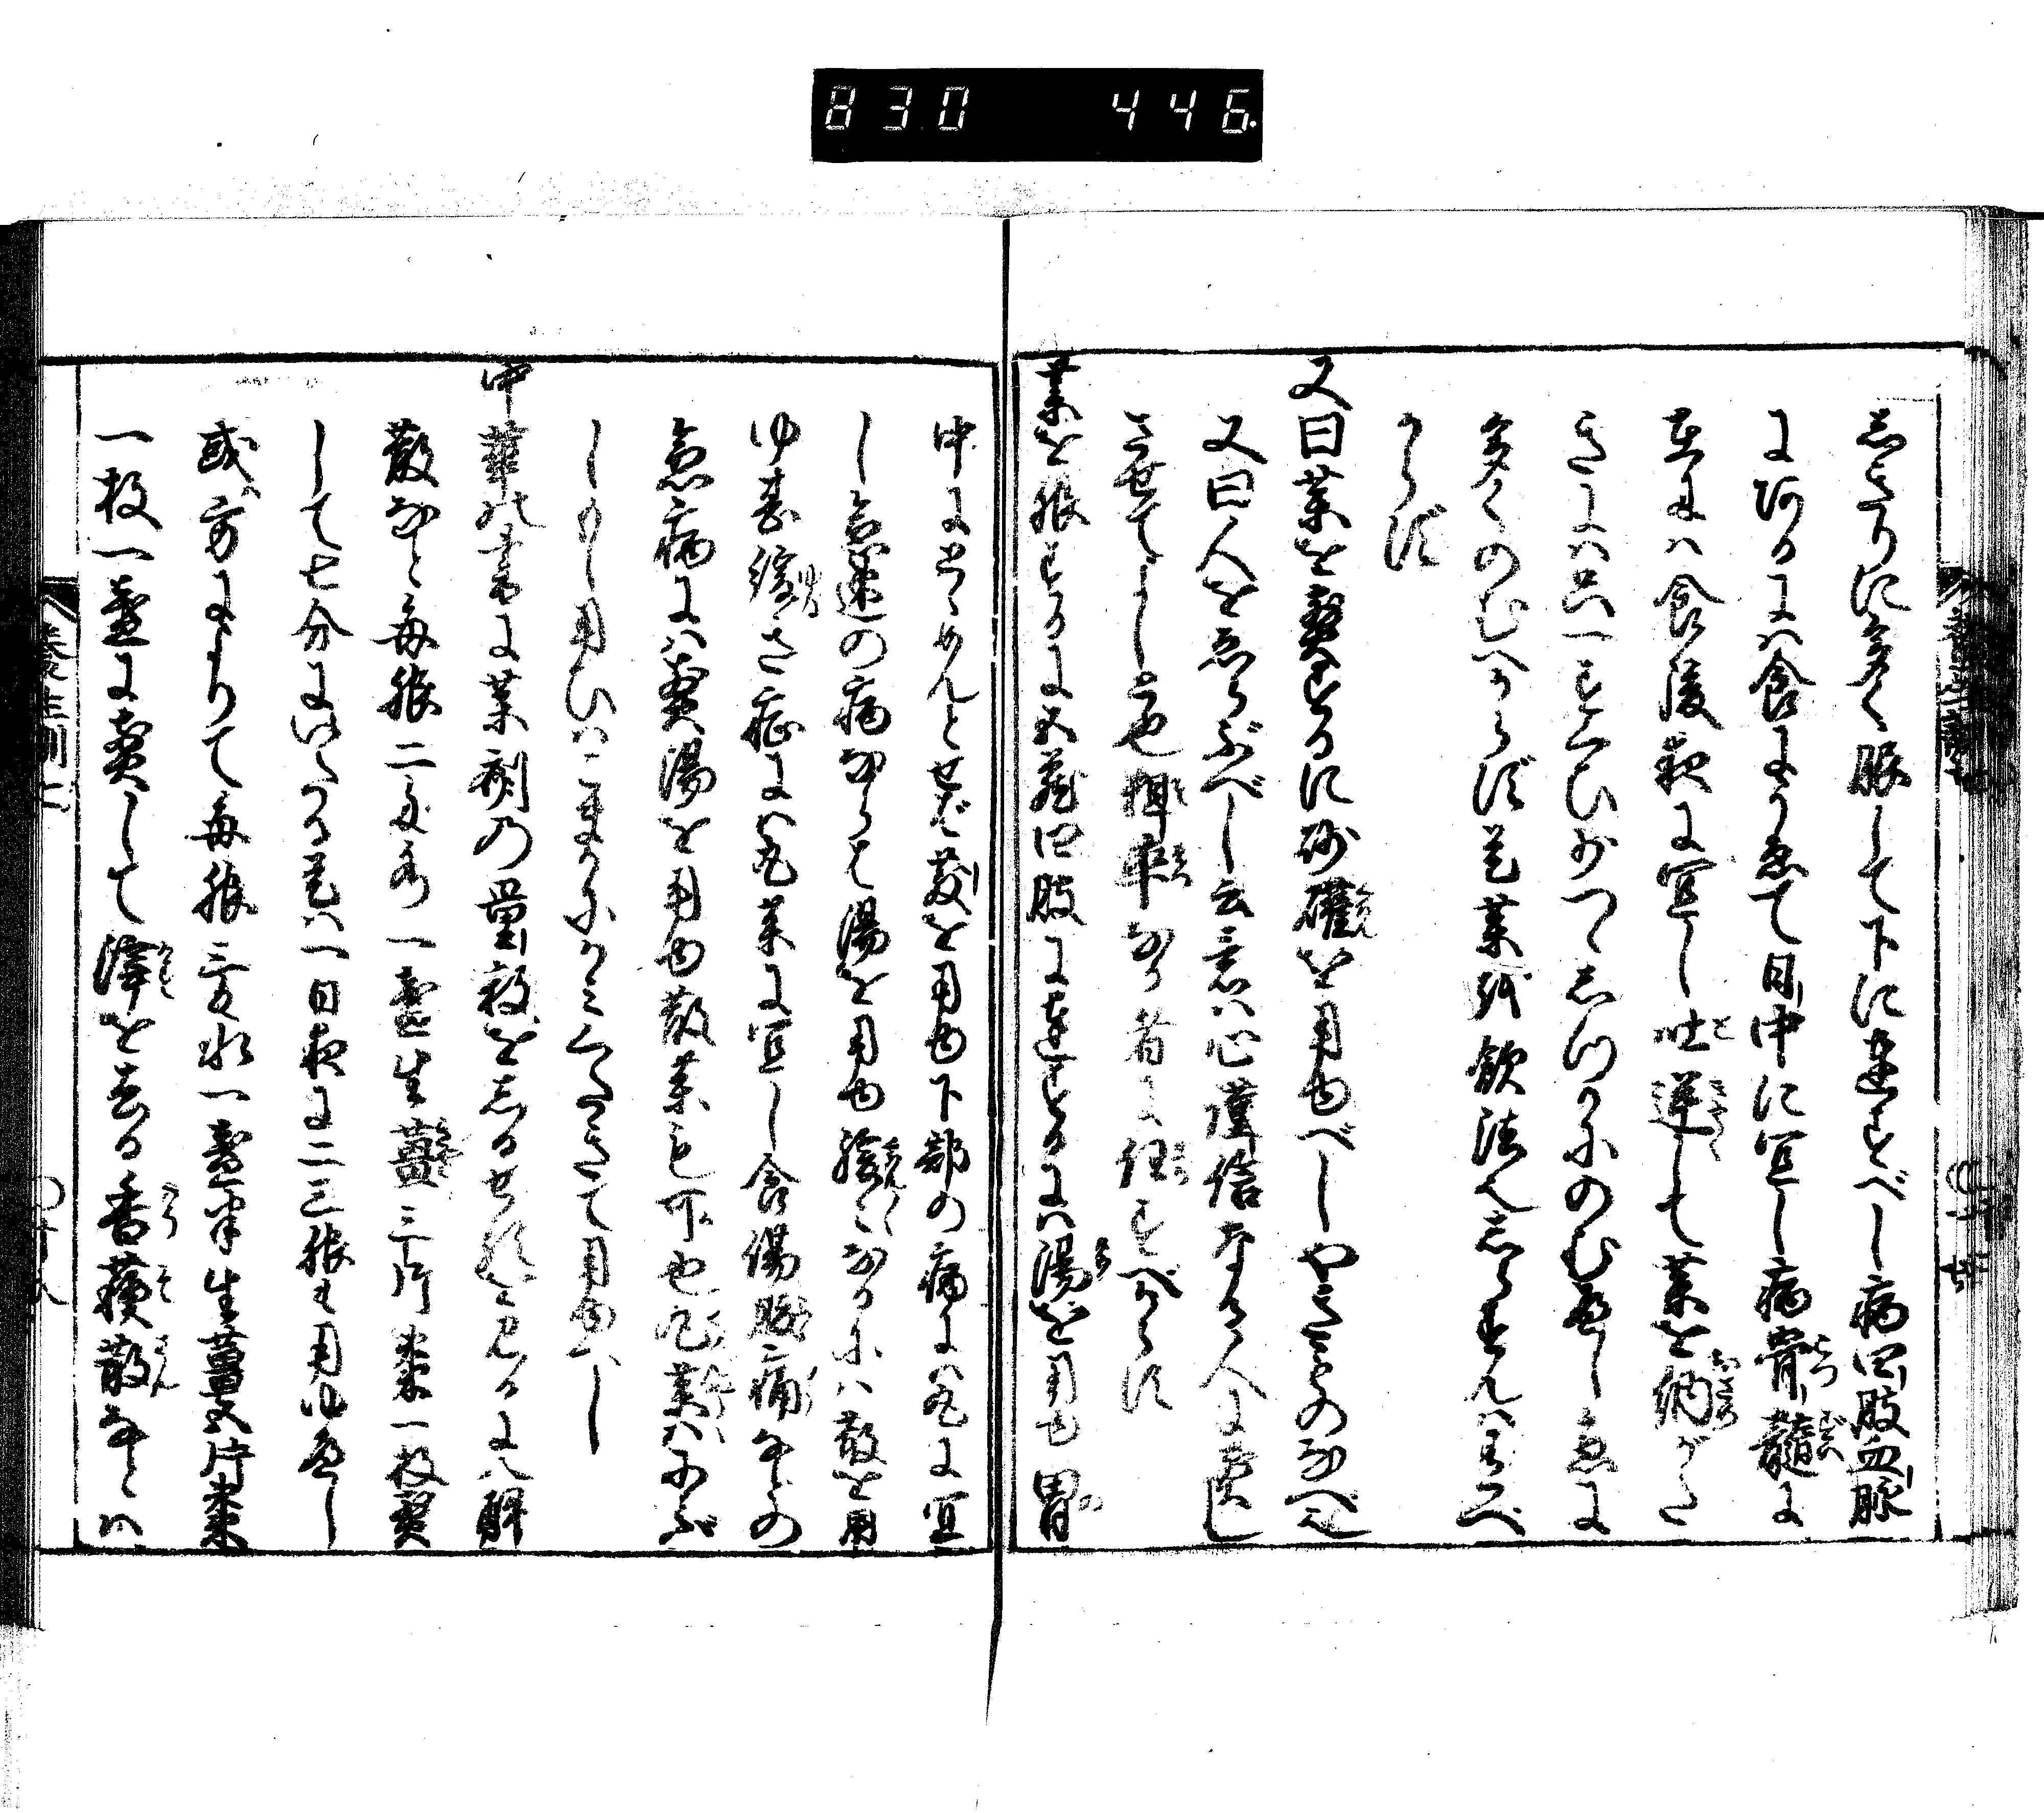 830 446.
しきりに多く服して下に達すべし病四肢血脉
にあるには食にうゑて日中に宜し病骨髄に
在には食後夜に宜し吐逆して薬を納がた
きには只一すくひ少つゝしづかにのむべし急に
多くのむべからず是薬を飲法也しらずんばあるべ
からず
又曰薬を煎ずるに砂罐を用ゆべしやきものなべ也
又曰人をゑらぶべし云意は心謹信なる人に煎じ
させてよしと也粗率なる者に任すべからず
薬を服するに五臓四肢に達するには湯を用ゆ胃
中にとゞめんとせば散を用ゆ下部の病には丸に宜
し急速の病ならば湯を用ゆ緩々なるには散を用
ゆ甚緩き症には丸薬に宜し食傷腹痛などの
急病には煎湯を用ゆ散薬も可也丸薬はにぶ
しもし用ひばこまかにかみくだきて用ゆべし
中華の書に薬剤の量数をしるせるを見るに八解
散など毎服二匁水一盞生薑三片棗一枚煎
じて七分にいたる是は一日夜に二三服も用ゆべし
或は方によりて毎服三匁水一盞半生薑五片棗
一枚一盞に煎じて滓を去る香蘇散などは
養生訓 七